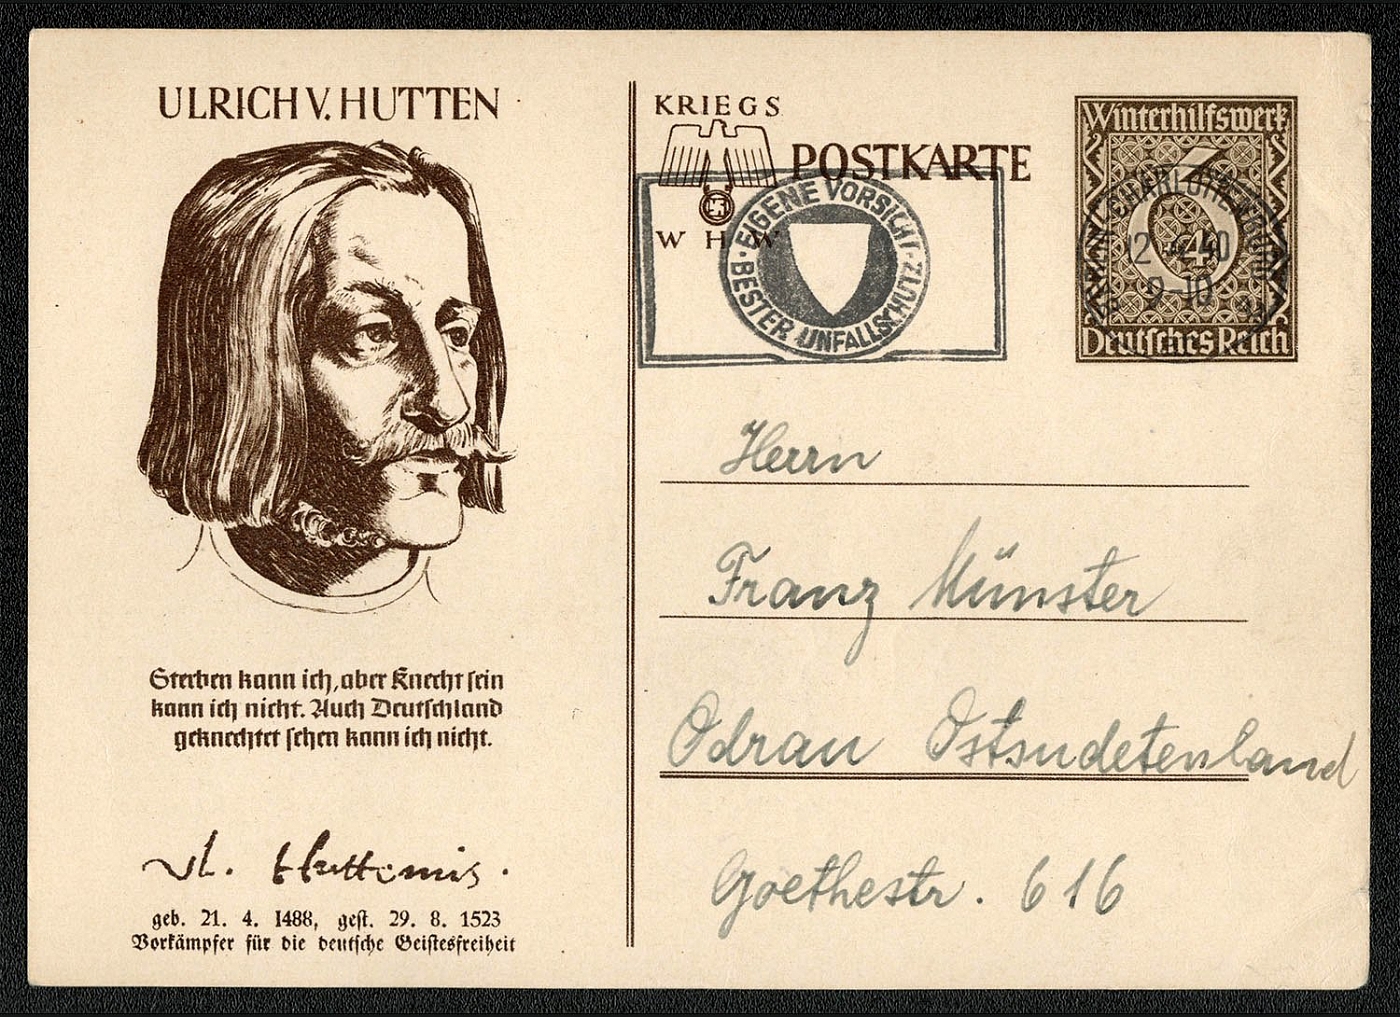 ULRICH V. HUTTEN
Sterben kann ich, aber Knecht sein
kann ich nicht. Auch Deutschland
geknechtet sehen kann ich nicht.
geb. 21. 4. 1488, gest. 29. 8. 1523
Vorkämpfer für die deutsche Geistesfreiheit
KRIEGS
POSTKARTE
W H W
EIGENE VORSICHT
BESTER UNFALLSCHUTZ
Winterhilfswerk
6
4
Deutsches Reich
CHARLOTTENBURG
12 2 40
9-10
Herrn
Franz Münster
Odrau Ostsudetenland
Goethestr. 616